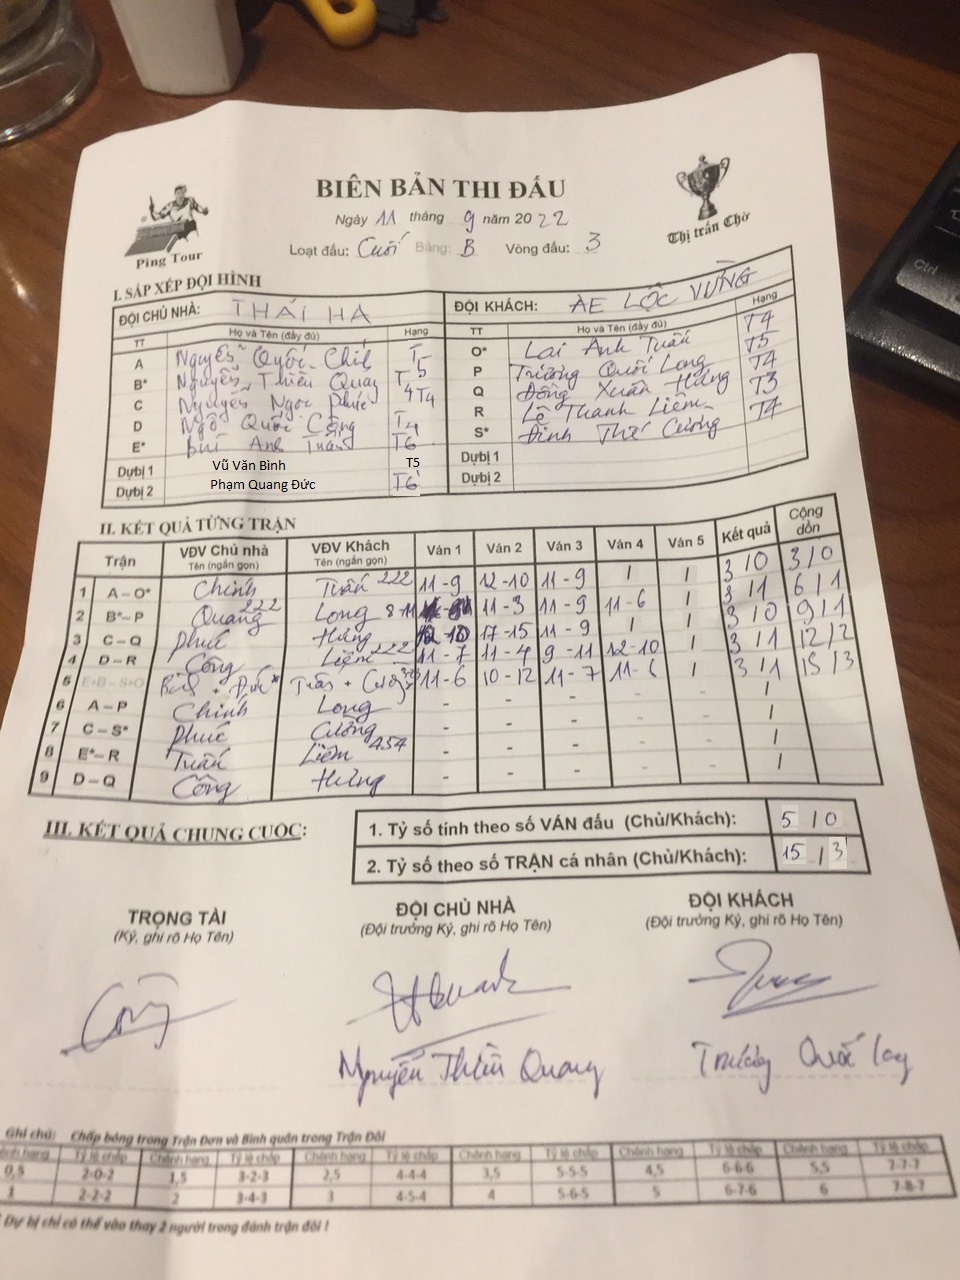 BIÊN BẢN THI ĐẤU
Ngày 11 tháng 9 năm 2022
Ping Tour
Thị trấn Chờ
Loạt đấu: Cuối Bảng: B Vòng đấu: 3
I. SẮP XẾP ĐỘI HÌNH
ĐỘI CHỦ NHÀ: THÁI HÀ ĐỘI KHÁCH: AE LỘC VỪNG
TT Họ và Tên (đầy đủ) Hạng TT Họ và Tên (đầy đủ) Hạng
A Nguyễn Quốc Chính T5 O* Lai Anh Tuấn T4
B* Nguyễn Thiều Quang T4 P Trương Quốc Long T5
C Nguyễn Ngọc Phúc T4 Q Đồng Xuân Hưng T4
D Ngô Quốc Công T4 R Lê Thanh Liêm T3
E* Bùi Anh Tuấn T6 S* Đinh Thế Cương T4
Dự bị 1 Vũ Văn Bình T5 Dự bị 1
Dự bị 2 Phạm Quang Đức T6 Dự bị 2
II. KẾT QUẢ TỪNG TRẬN
Trận VĐV Chủ nhà Tên (ngắn gọn) VĐV Khách Tên (ngắn gọn) Ván 1 Ván 2 Ván 3 Ván 4 Ván 5 Kết quả Cộng dồn
1 A – O* Chính Tuấn 222 11-9 12-10 11-9 / / 3/0 3/0
2 B* – P Quang 222 Long 8-11 11-3 11-9 11-6 / 3/1 6/1
3 C – Q Phúc Hưng 12-10 17-15 11-9 / / 3/0 9/1
4 D – R Công Liêm 222 11-7 11-4 9-11 12-10 / 3/1 12/2
5 E+B – S+O Bình + Đức Tuấn + Cương 11-6 10-12 11-7 11-6 / 3/1 15/3
6 A – P Chính Long - - - - - /
7 C – S* Phúc Cương - - - - - /
8 E* – R Tuấn Liêm 454 - - - - - /
9 D – Q Công Hưng - - - - - /
III. KẾT QUẢ CHUNG CUỘC:
1. Tỷ số tính theo số VÁN đấu (Chủ/Khách): 5/0
2. Tỷ số theo số TRẬN cá nhân (Chủ/Khách): 15/3
TRỌNG TÀI ĐỘI CHỦ NHÀ ĐỘI KHÁCH
(Ký, ghi rõ Họ Tên) (Đội trưởng Ký, ghi rõ Họ Tên) (Đội trưởng Ký, ghi rõ Họ Tên)
Nguyễn Thiều Quang Trương Quốc Long
Ghi chú: Chấp bóng trong Trận Đơn và Bình quân trong Trận Đôi
Chênh hạng Tỷ lệ chấp Chênh hạng Tỷ lệ chấp Chênh hạng Tỷ lệ chấp Chênh hạng Tỷ lệ chấp Chênh hạng Tỷ lệ chấp Chênh hạng Tỷ lệ chấp
0,5 2-0-2 1,5 3-2-3 2,5 4-4-4 3,5 5-5-5 4,5 6-6-6 5,5 7-7-7
1 2-2-2 2 3-4-3 3 4-5-4 4 5-6-5 5 6-7-6 6 7-8-7
Dự bị chỉ có thể vào thay 2 người trong đánh trận đôi !
Ctrl